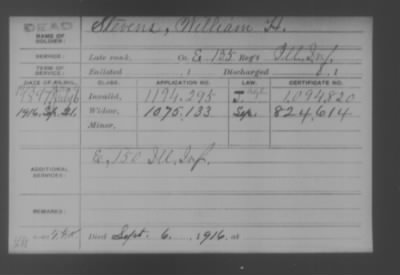 DEAD
NAME OF SOLDIER: Stevens, William H.
SERVICE: Late rank, Co. E, 155 Reg't Ill. Inf.
TERM OF SERVICE: Enlisted 1 Discharged 1
DATE OF FILING. CLASS. APPLICATION NO. LAW. CERTIFICATE NO.
Invalid, 1194.295 J. 1094820
1916. Sep. 21. Widow, 1075.133 Sep. 824,614
Minor,
ADDITIONAL SERVICES: E, 150 Ill. Inf.
REMARKS:
Died Sept. 6, 1916, at